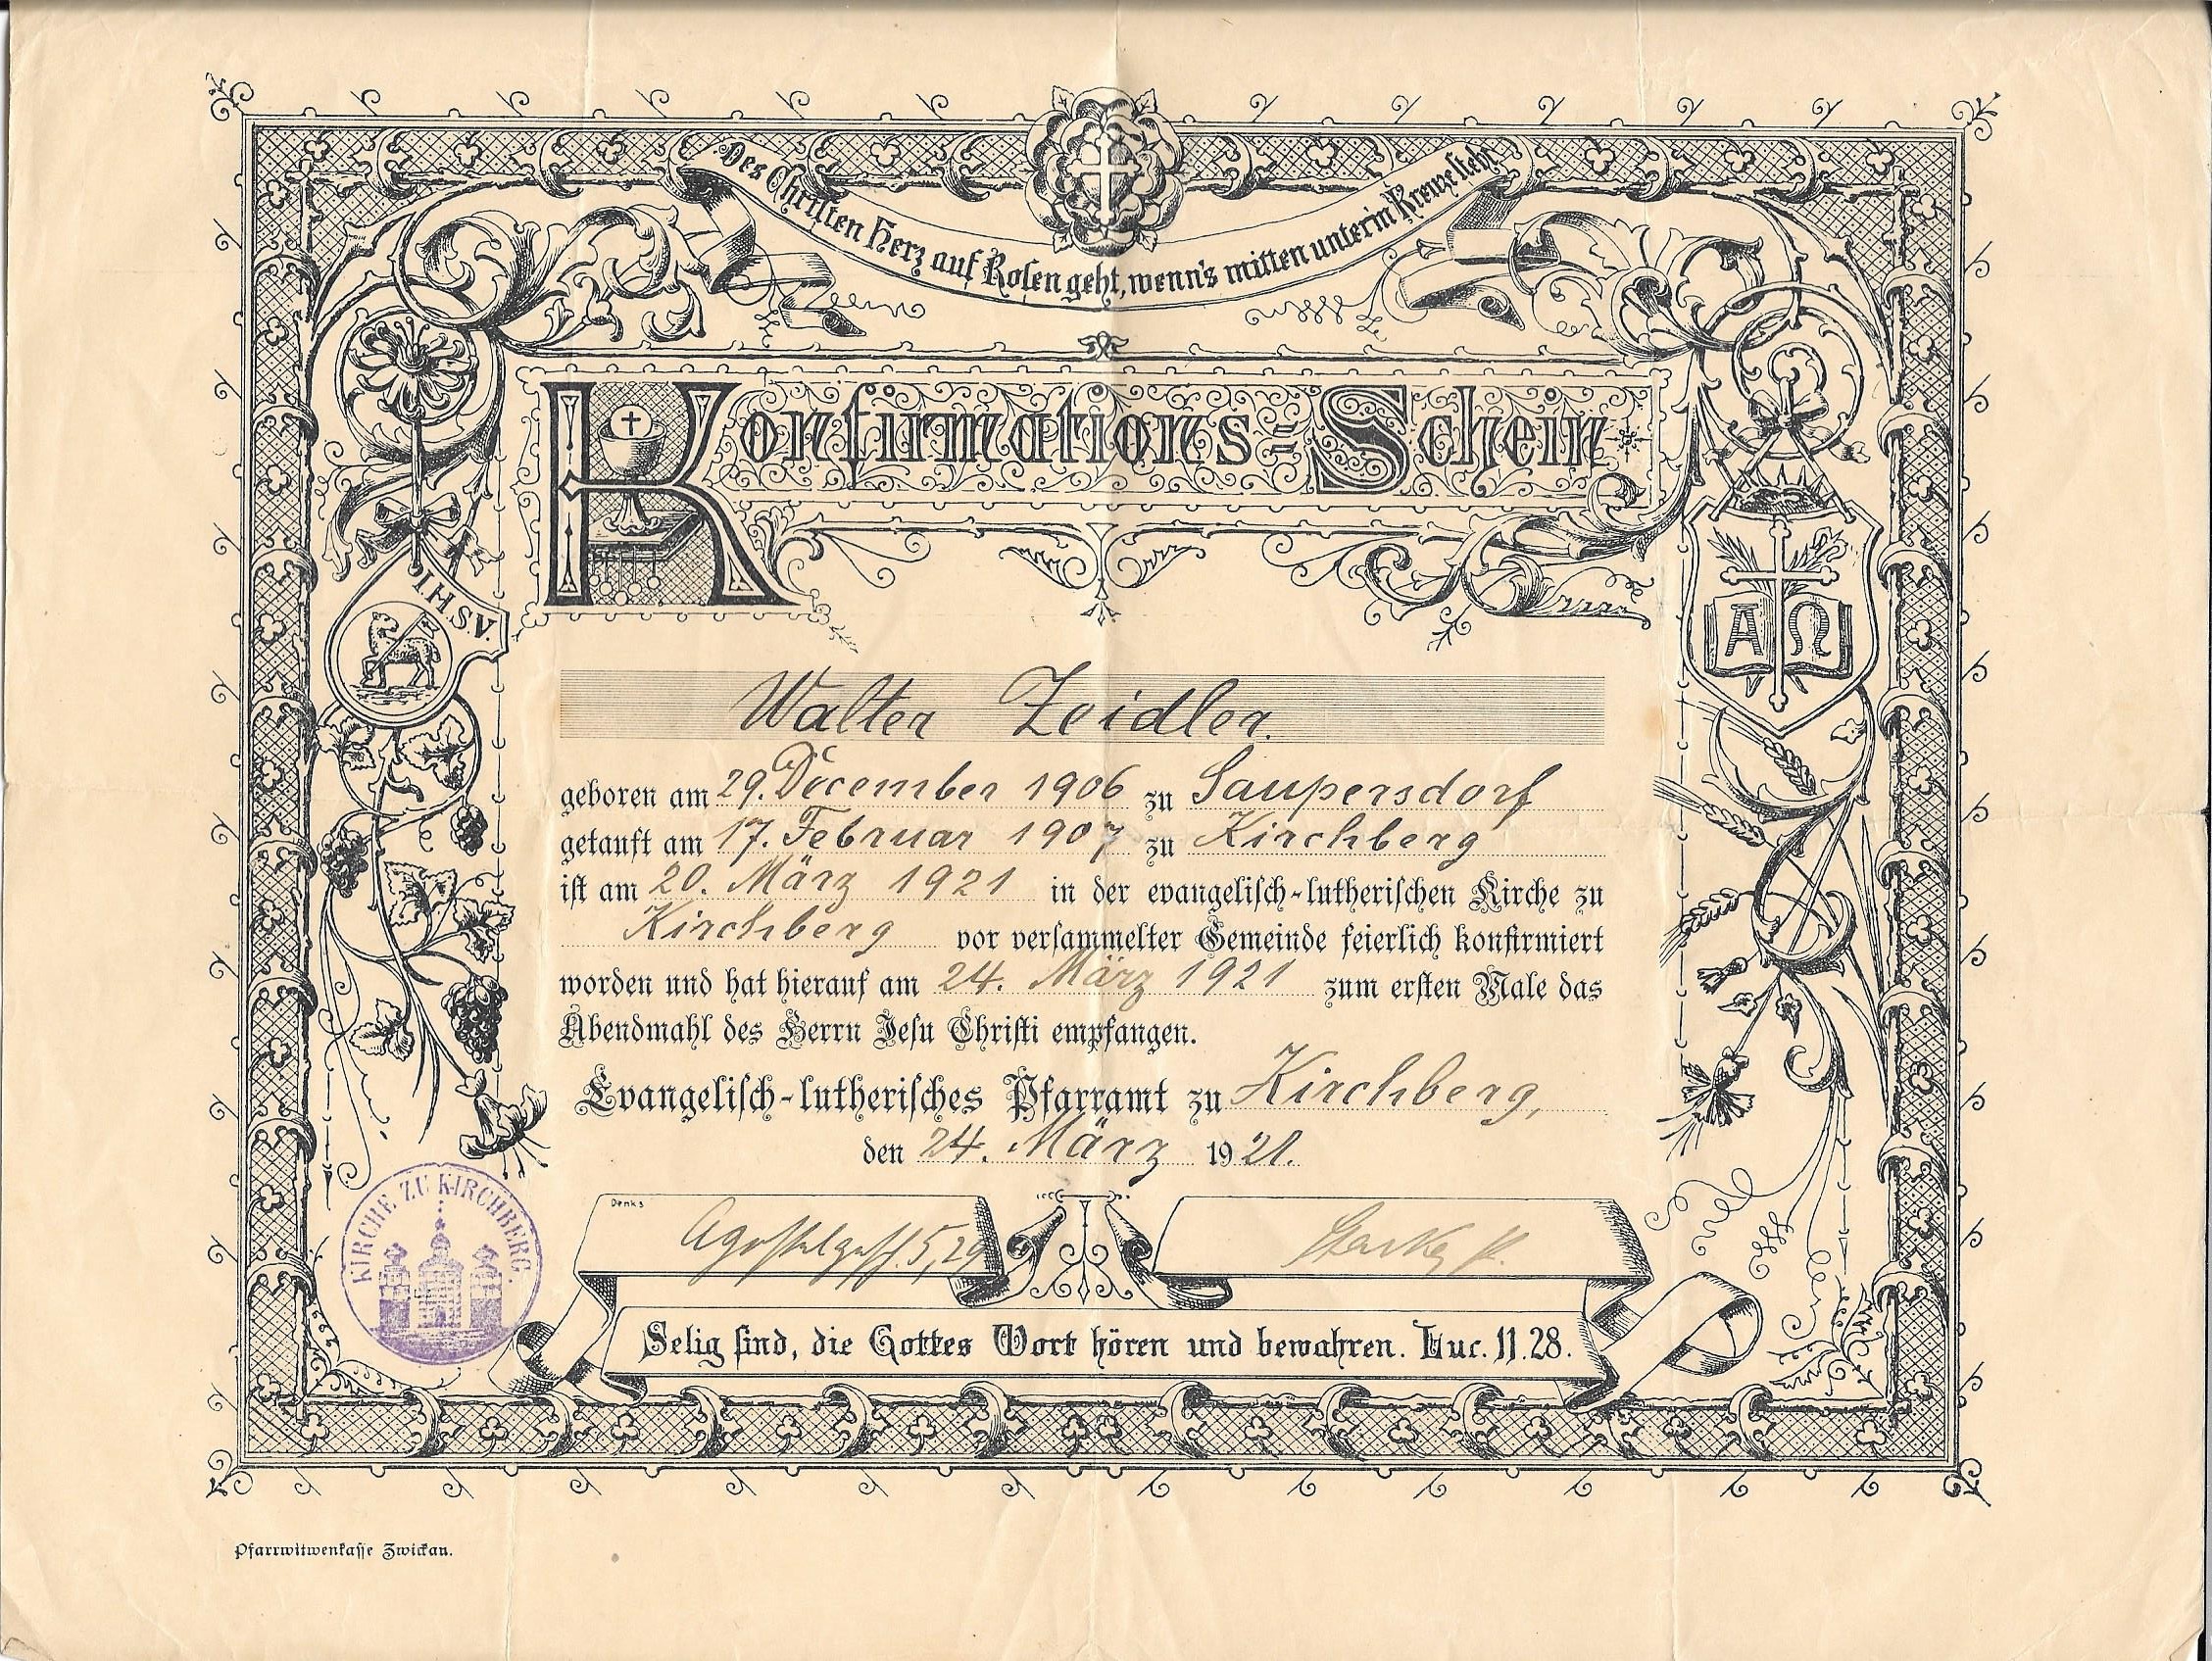 Des Christen Herz auf Rosen geht, wenn's mitten unter'm Kreuze steht
Konfirmations-Schein
I.H.S.V.
Α Ω
Walter Zeidler.
geboren am 29. December 1906 zu Saupersdorf
getauft am 17. Februar 1907 zu Kirchberg
ist am 20. März 1921 in der evangelisch-lutherischen Kirche zu
Kirchberg vor versammelter Gemeinde feierlich konfirmiert
worden und hat hierauf am 24. März 1921 zum ersten Male das
Abendmahl des Herrn Jesu Christi empfangen.
Evangelisch-lutherisches Pfarramt zu Kirchberg,
den 24. März 1921.
KIRCHE ZU KIRCHBERG.
Denks
Apostelgesch. 5, 29
Selig sind, die Gottes Wort hören und bewahren. Luc. 11. 28.
Pfarrwitwenkasse Zwickau.